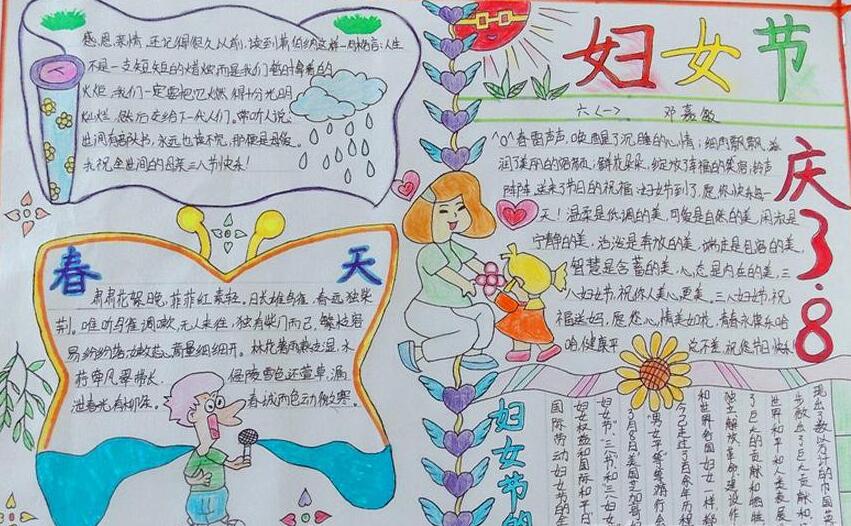 感恩亲情,还记得很久以前,读到萧伯纳这样一句格言:人生
不是一支短短的蜡烛,而是我们暂时拿着的
火炬,我们一定要把它燃得十分光明
灿烂,然后交给下一代人们。常听人说:
世间有部大书,永远也读不完,那便是母爱。
祝全世间的母亲三八节快乐!
春天
肃肃花絮晚,菲菲红素轻。日长雄鸟雀,春远独柴
荆。
唯听鸟雀调嗽,无人来往,独有柴门而已,繁枝容
易纷纷落,嫩蕊商量细细开。林花著雨燕支湿,水
荇牵风翠带长。
侵陵雪色还萱草,漏
泄春光有柳条。
妇女节
六(一) 邓嘉敏
庆3.8
^0^春雷声声,唤醒了沉睡的心情;细雨飘飘,滋
润了美丽的脸颊;鲜花朵朵,绽放了幸福的笑容;铃声
阵阵,送来了节日的祝福:妇女节到了,愿你快乐每一
天!温柔是低调的美,可爱是自然的美,
宁静的美,活泼是奔放的美,
智慧是含蓄的美,心态是内在的美,三
八妇女节,祝你人美心更美。三八妇女节,祝
福送妈,愿您心情美如花,青春永康乐哈
哈,健康平
祝您节日快乐!
妇女节的
现出了数以万计的巾帼英
步做出了巨大贡献
世界和平和人类发展
了巨大的贡献和牺牲
独立解放革命建设作
和世界各国妇女一样,
今已走过了百余年历程
男女平等等游行会
3月8日美国芝加哥
妇女节"三八节"和三八妇女
妇女权益和国际和平日
国际劳动妇女节的全